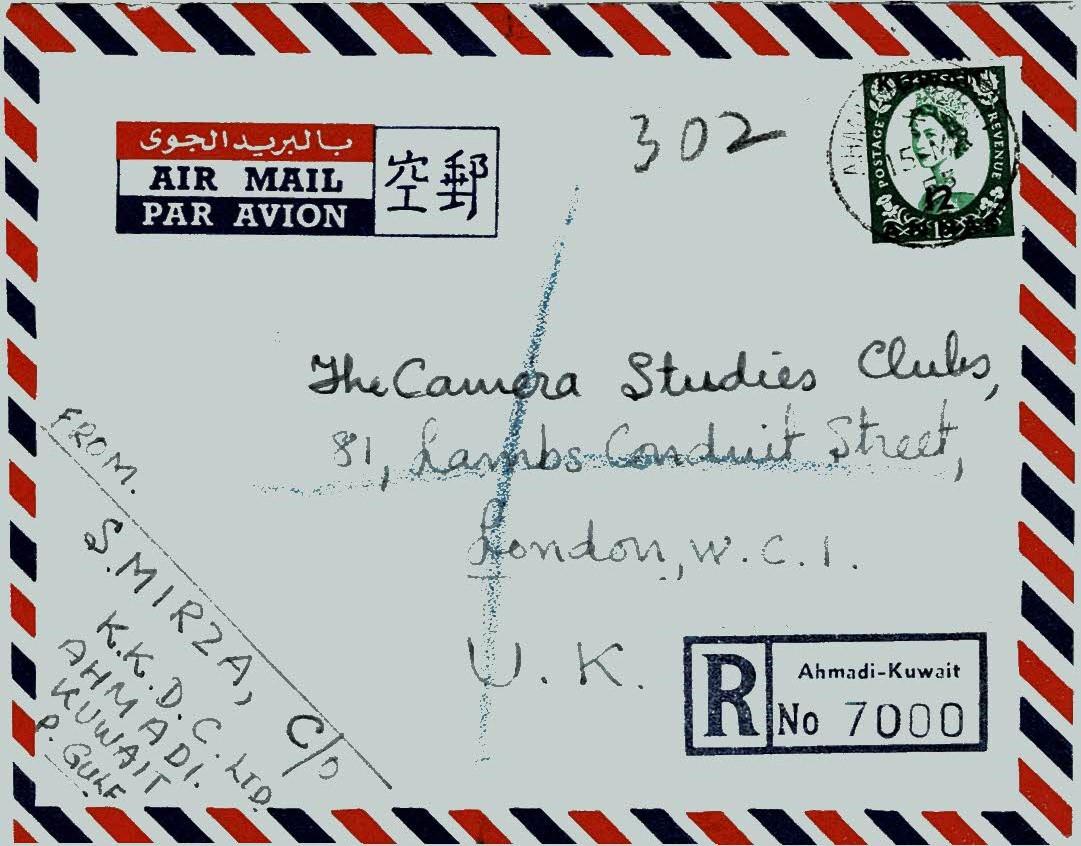 بالبريد الجوى
AIR MAIL
PAR AVION
空郵
302
POSTAGE REVENUE
12
The Camera Studies Clubs,
81, Lambs Conduit Street,
London, W.C.1.
U.K.
FROM.
S. MIRZA, C/o
K.K.D.C. LTD.
AHMADI.
KUWAIT
P. GULF
R
Ahmadi-Kuwait
No 7000